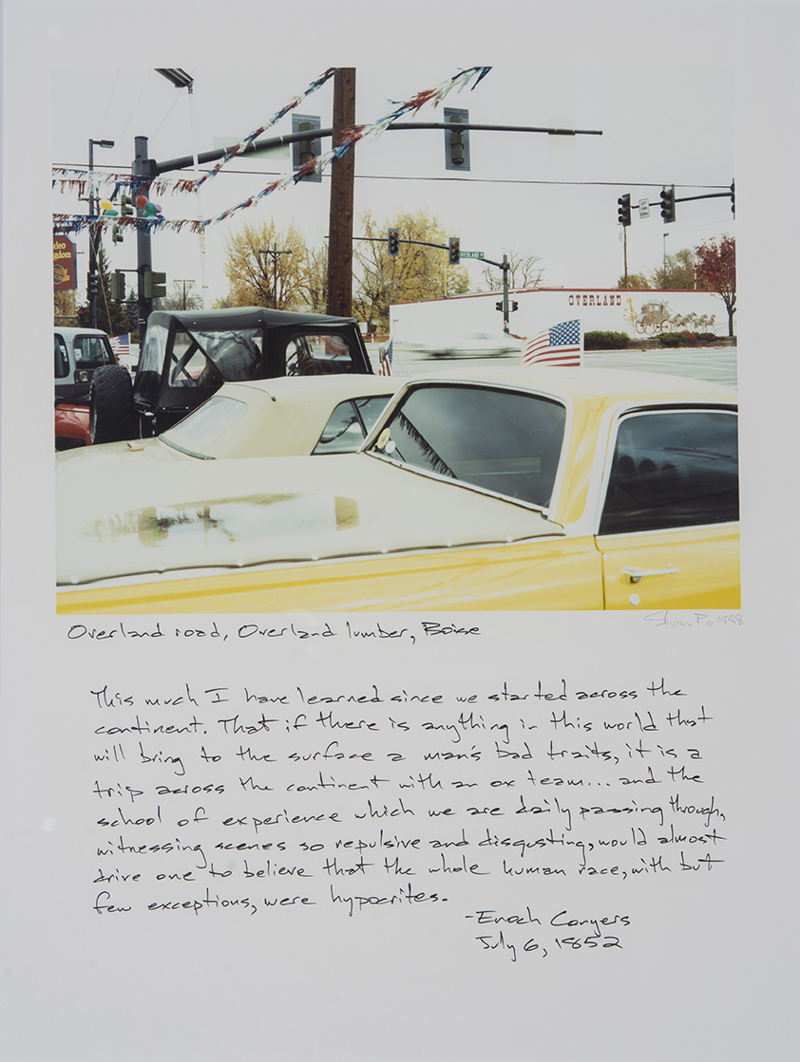 deo
gdom
OVERLAND
OVERLAND
1998
Overland road, Overland lumber, Boise
This much I have learned since we started across the
continent. That if there is anything in this world that
will bring to the surface a man's bad traits, it is a
trip across the continent with an ox team... and the
school of experience which we are daily passing through,
witnessing scenes so repulsive and disgusting, would almost
drive one to believe that the whole human race, with but
few exceptions, were hypocrites.
-Enoch Conyers
July 6, 1852